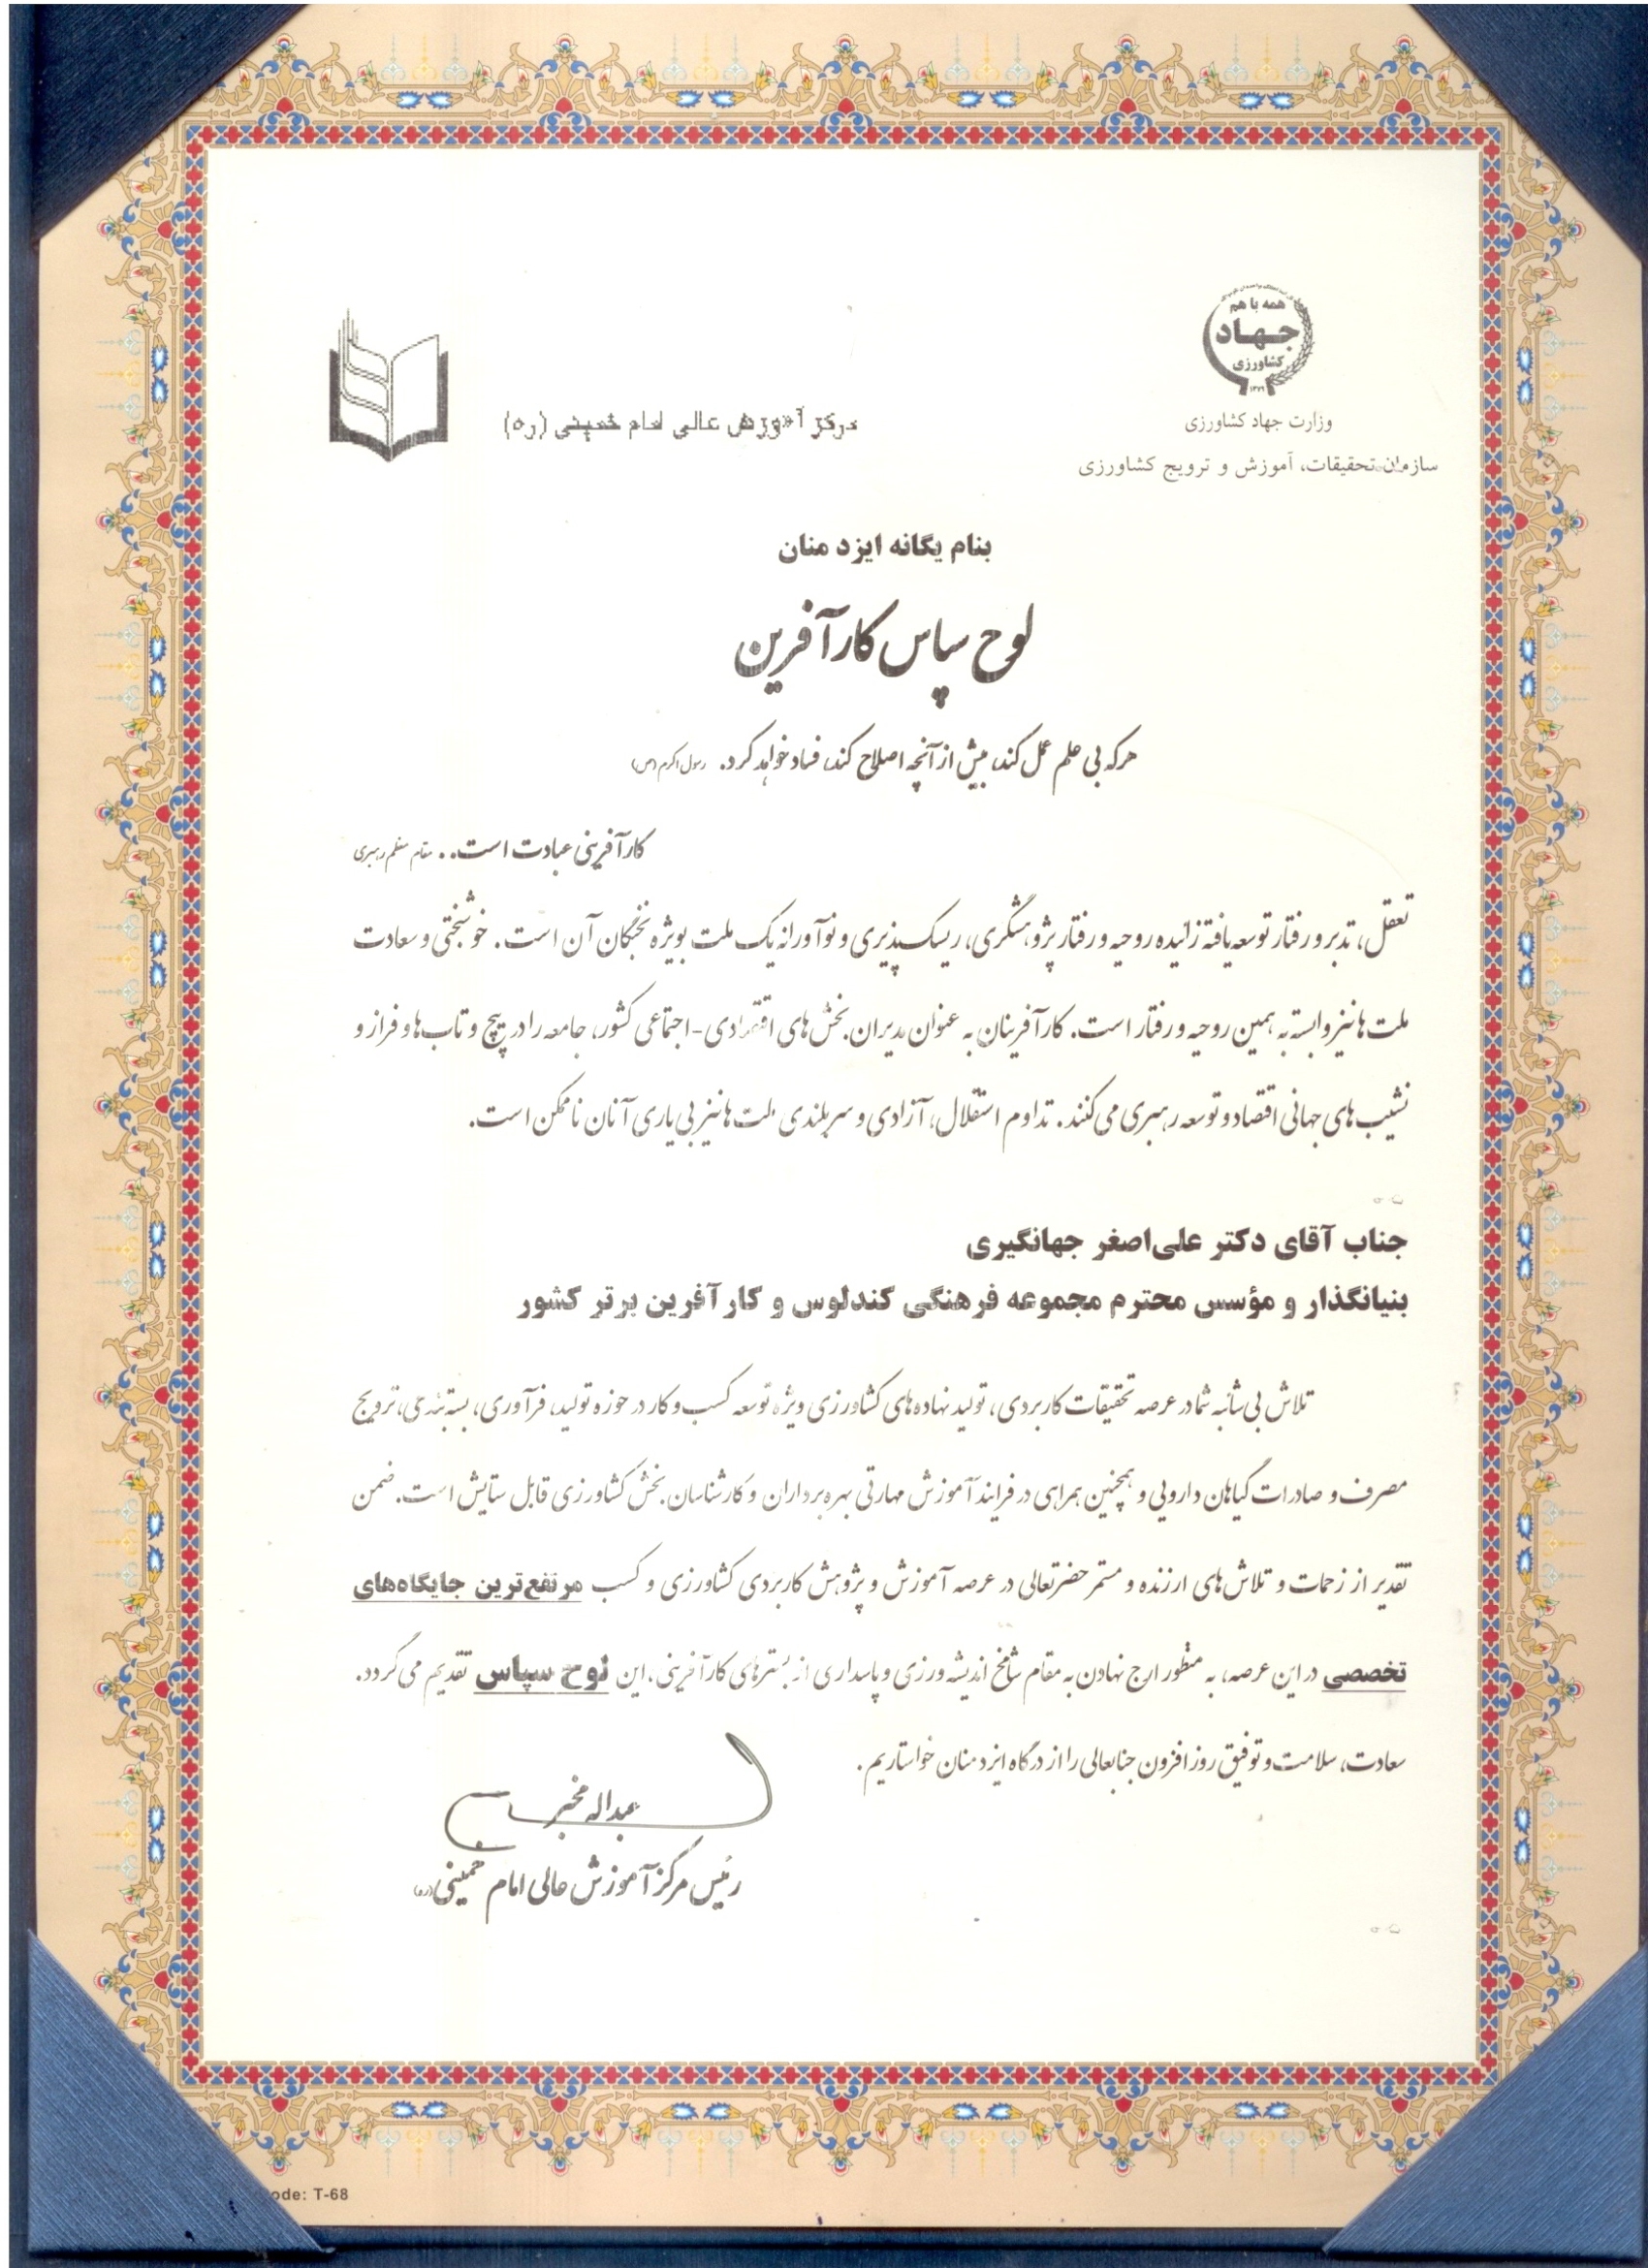 همه با هم
جهاد
کشاورزی
۱۳۷۹
وزارت جهاد کشاورزی
سازمان تحقیقات، آموزش و ترویج کشاورزی
مرکز آموزش عالی امام خمینی (ره)
بنام یگانه ایزد منان
لوح سپاس کارآفرین
هرکه بی علم عمل کند، بیش از آنچه اصلاح کند، فساد خواهد کرد. رسول اکرم (ص)
کارآفرینی عبادت است.. مقام معظم رهبری
تعقل، تدبر و رفتار توسعه یافته زائیده روحیه و رفتار پژوهشگری، ریسک پذیری و نوآورانه یک ملت بویژه نخبگان آن است. خوشبختی و سعادت
ملت ها نیز وابسته به همین روحیه و رفتار است. کارآفرینان به عنوان مدیران بخش های اقتصادی-اجتماعی کشور، جامعه را در پیچ و تاب ها و فراز و
نشیب های جهانی اقتصاد و توسعه رهبری می کنند. تداوم استقلال، آزادی و سربلندی ملت ها نیز بی یاری آنان ناممکن است.
جناب آقای دکتر علی‌اصغر جهانگیری
بنیانگذار و مؤسس محترم مجموعه فرهنگی کندلوس و کارآفرین برتر کشور
تلاش بی شائبه شما در عرصه تحقیقات کاربردی، تولید نهاده های کشاورزی ویژه توسعه کسب و کار در حوزه تولید، فرآوری، بسته بندی، ترویج
مصرف و صادرات گیاهان دارویی و همچنین همراهی در فرایند آموزش مهارتی بهره برداران و کارشناسان بخش کشاورزی قابل ستایش است. ضمن
تقدیر از زحمات و تلاش های ارزنده و مستمر حضرتعالی در عرصه آموزش و پژوهش کاربردی کشاورزی و کسب مرتفع‌ترین جایگاه‌های
تخصصی در این عرصه، به منظور ارج نهادن به مقام شامخ اندیشه ورزی و پاسداری از بسترهای کارآفرینی، این لوح سپاس تقدیم می گردد.
سعادت، سلامت و توفیق روز افزون جنابعالی را از درگاه ایزد منان خواستاریم.
عبداله مخبر
رئیس مرکز آموزش عالی امام خمینی (ره)
ode: T-68